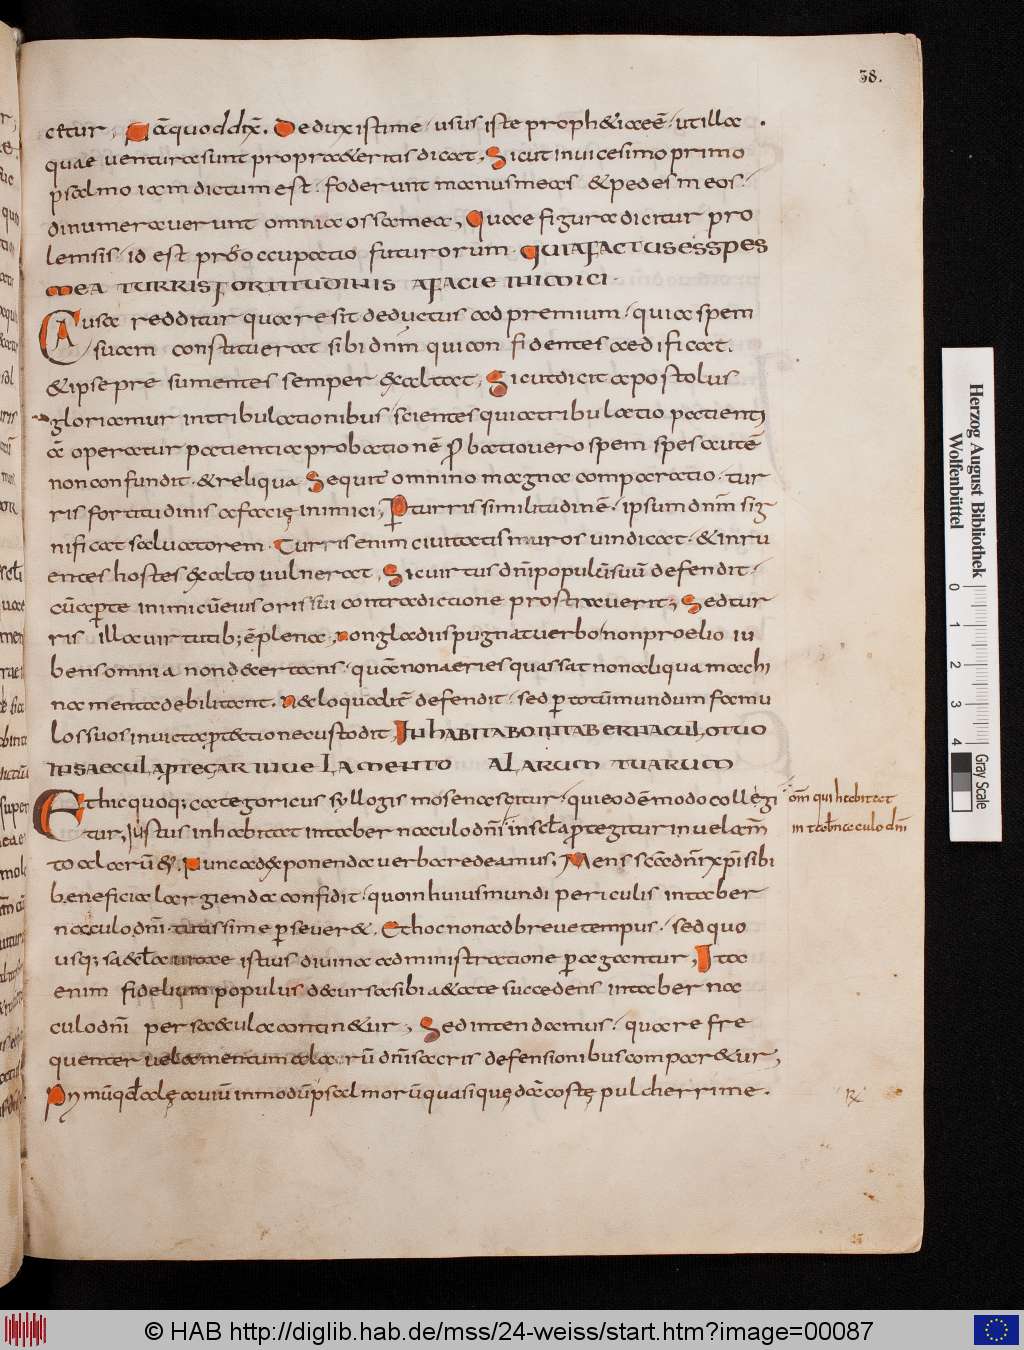 38.
cetur, Nā quod dix̄. Deduxisti me· usus iste prophetiae ē· ut illa
quae ventura sunt pro praeteritis dicat. Sicut in vicesimo primo
psalmo iam dictum est· foderunt manus meas & pedes meos·
dinumeraverunt omnia ossa mea, Quae figura dicitur pro
lemsis· id est praeoccupatio futurorum· QUIA FACTUS ES SPES
MEA TURRIS FORTITUDINIS A FACIE INIMICI·
Causa redditur quare sit deductus ad premium· quia spem
suam constituerat sibi dn̄m qui confidentes aedificat.
& ipse presumentes semper exaltat, Sicut dicit apostolus
gloriamur in tribulationibus· scientes quia tribulatio patienti
ā operatur patientia probationē Probatio vero spem spes autē
non confundit· & reliqua Sequit omnino magna comparatio· tur
ris fortitudinis a facię inimici, P turris similitudinē· ipsum dn̄m sig
nificat salvatorem· Turris enim civitatis muros vindicat· & inru
entes hostes ex alto vulnerat, Sic virtus dn̄i populū suū defendit·
cū aperte inimicū eius oris sui contradictione prostraverit; Sed tur
ris illa virtutib; ē plena, non gladiis pugnat verbo non proelio iu
bens omnia non decertans· quā non aeries quassat non aliqua machi
namenta debilitant. Nec loqualit̄ defendit· sed p totū mundum famu
los suos invicta ptectione custodit, INHABITABO IN TABERNACULO TUO
IN SAECULA PTEGAR IN VELAMENTO ALARUM TUARUM
Et hic quoq; categoricus syllogismos enascitur· qui eodē modo collegi
tur, Iustus inhabitat in tabernaculo dn̄i in sc̄la ptegitur in velam̄
to alarū &. Nunc ad exponenda verba redeamus, Mens sc̄a dn̄i xp̄i sibi
beneficia largienda confidit· quo in huius mundi periculis in taber
naculo dn̄i· tutissime pseveret. Et hoc non ad breve tempus· sed quo
usq; saec̄la vitae istius divina administratione peragantur, Ita
enim fidelium populus decursa sibi aetate succedens in taberna
culo dn̄i per saecula continetur, Sed intendamus· quare fre
quenter velamentum alarū dn̄i sacris defensionibus comparetur,
Nymūqd alę aviū in modū psalmorū quasi quędā costę pulcherrime.
om̄ qui habitat
in tab̄naculo dn̄i
Herzog August Bibliothek
Wolfenbüttel
0 1 2 3 4
Gray Scale
© HAB http://diglib.hab.de/mss/24-weiss/start.htm?image=00087